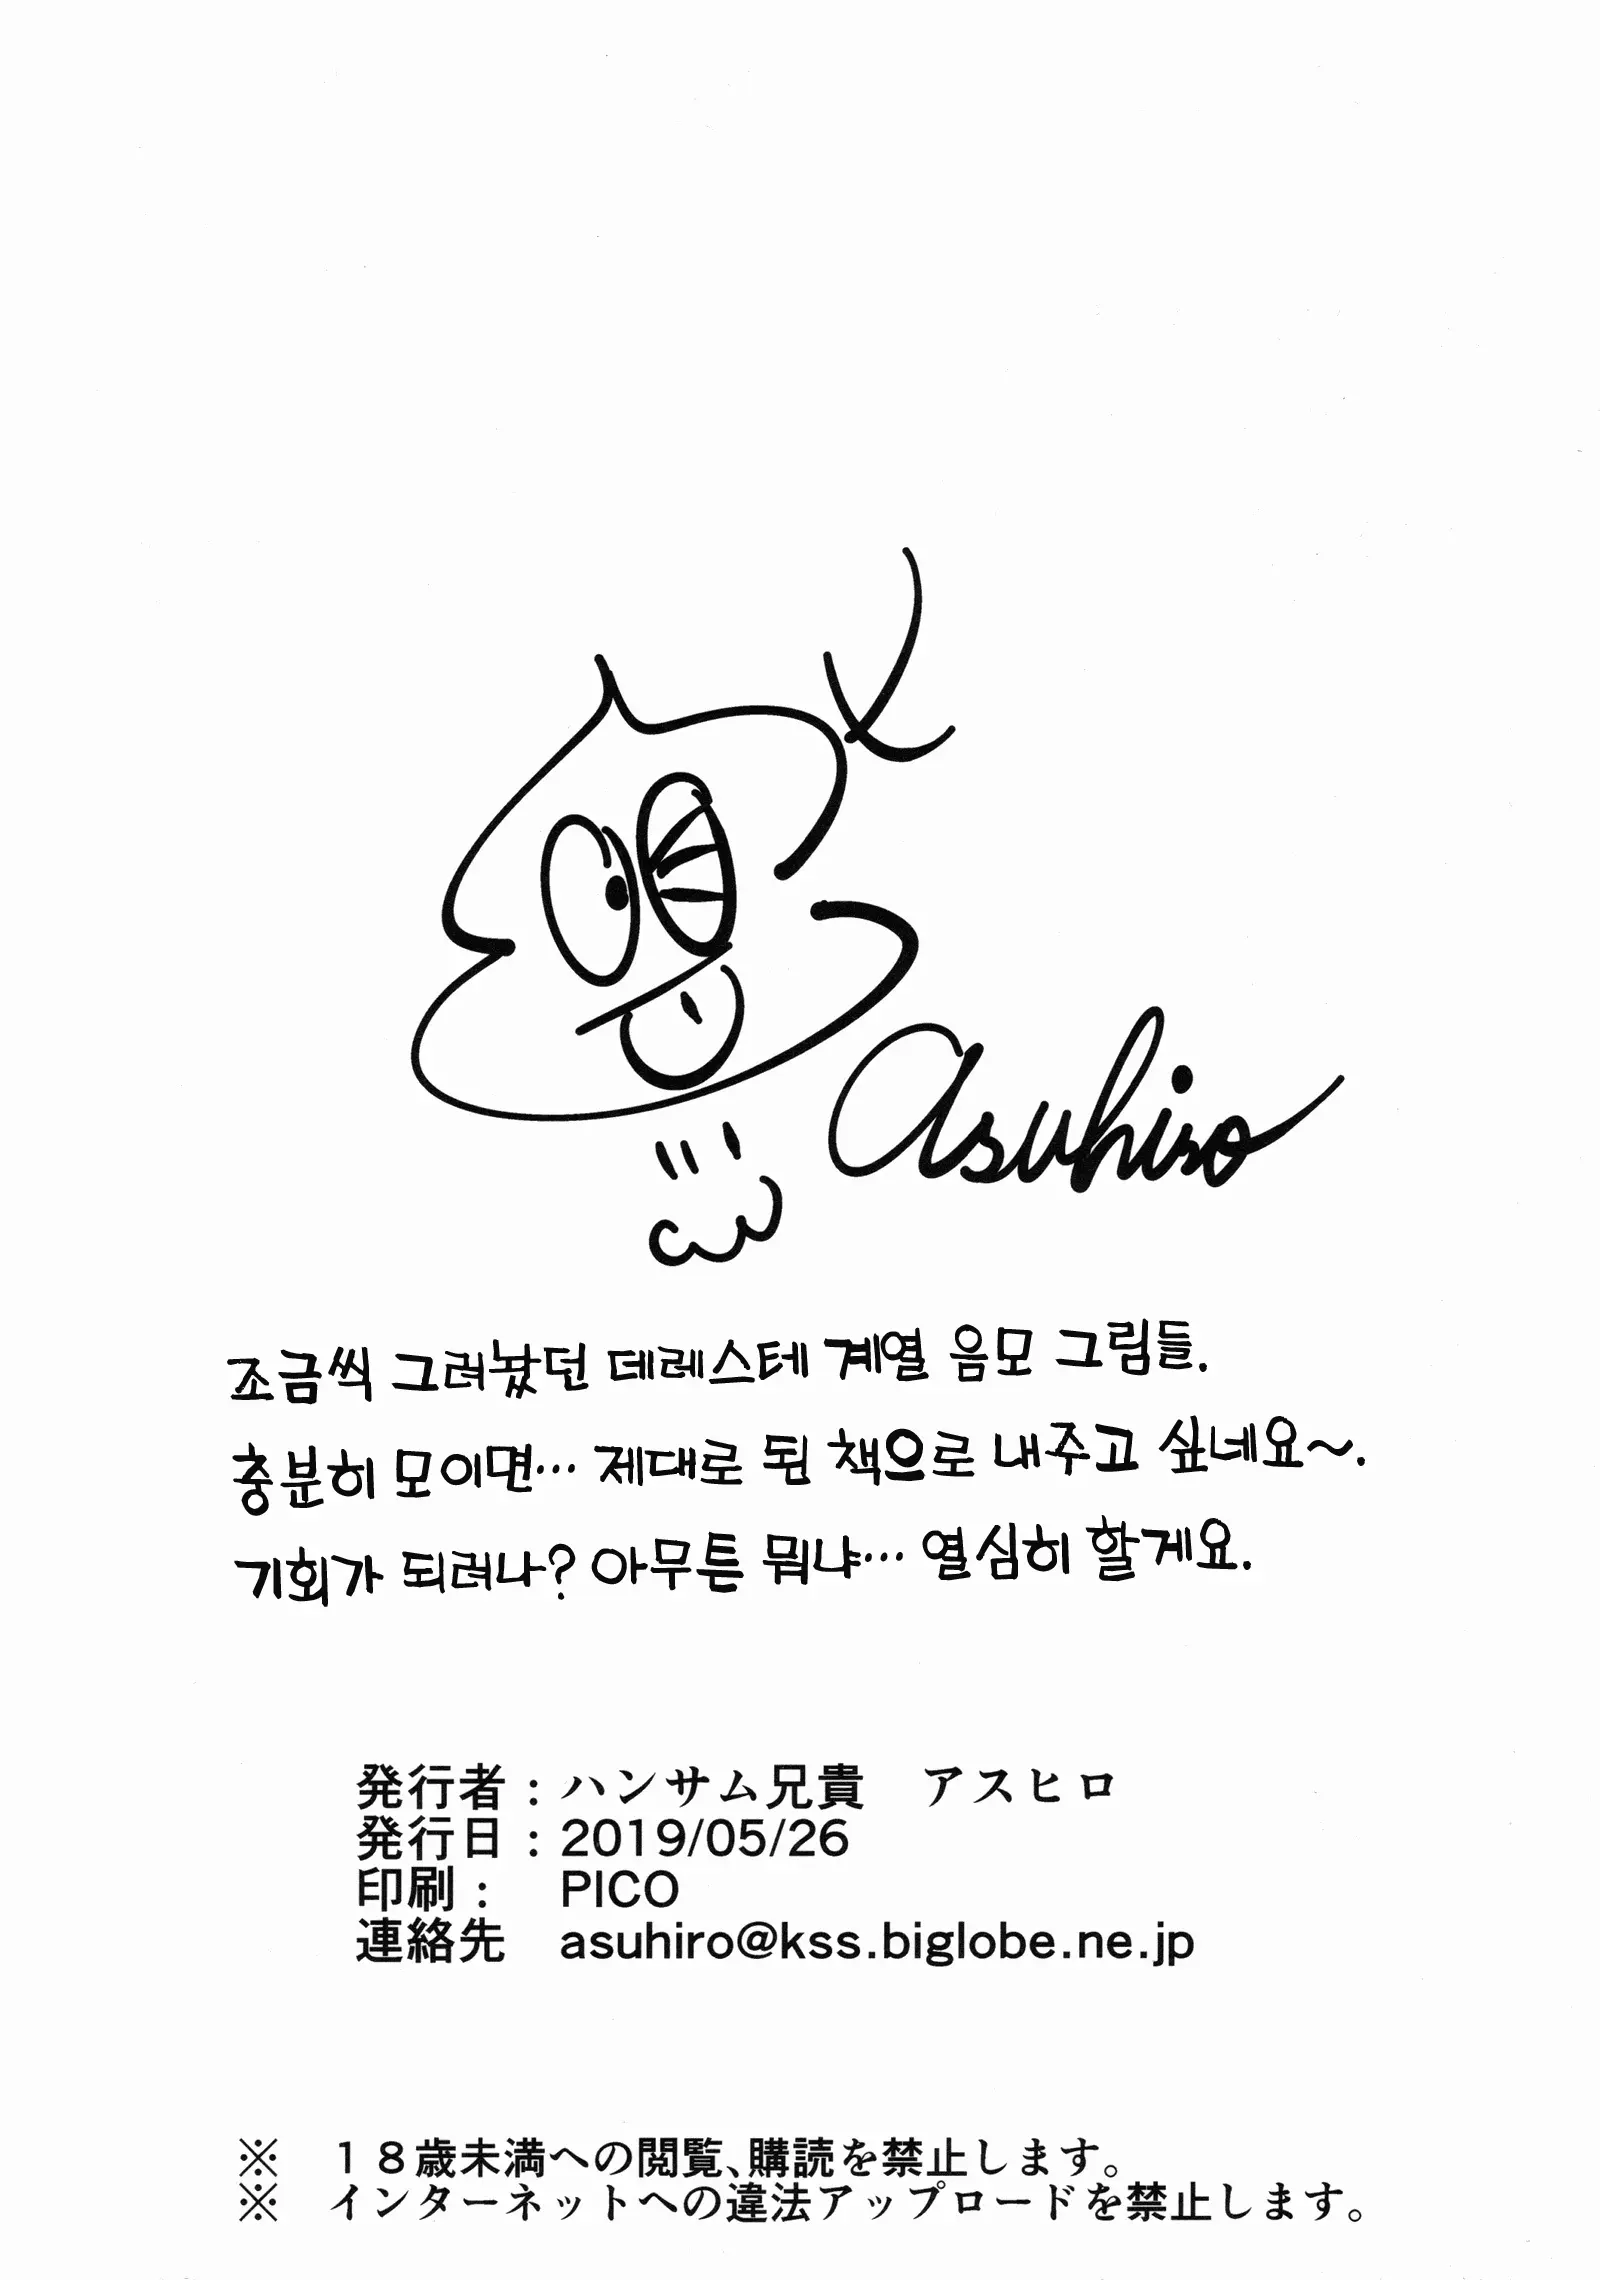 Asuhiro
조금씩 그려놨던 데레스테 계열 음모 그림들.
충분히 모이면… 제대로 된 책으로 내주고 싶네요~.
기회가 되려나? 아무튼 뭐냐… 열심히 할게요.
発行者：ハンサム兄貴　アスヒロ
発行日：2019/05/26
印刷：　PICO
連絡先　asuhiro@kss.biglobe.ne.jp
※　１８歳未満への閲覧、購読を禁止します。
※　インターネットへの違法アップロードを禁止します。